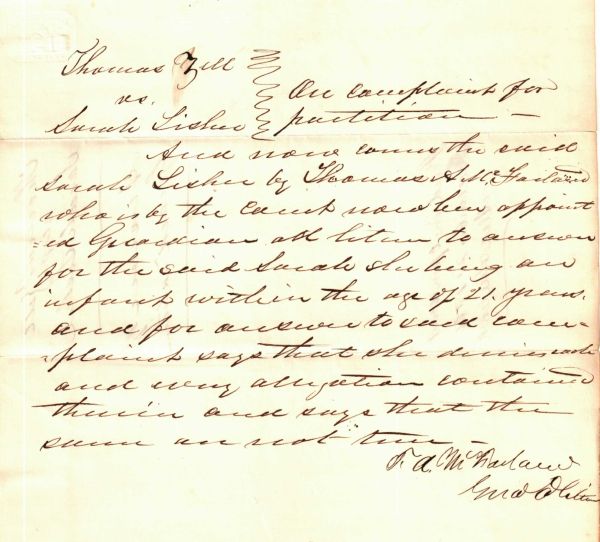 Thomas Zell
vs.
Sarah Lisher
On complaint for
partition —
And now comes the said
Sarah Lisher by Thomas A. McFarland
who is by the court now here appoint
=ed Guardian ad litem to answer
for the said Sarah she being an
infant within the age of 21. years.
and for answer to said com=
=plaint says that she denies each
and every allegation contained
therein and says that the
same are not true —
T. A. McFarland
Guard Ad Litem